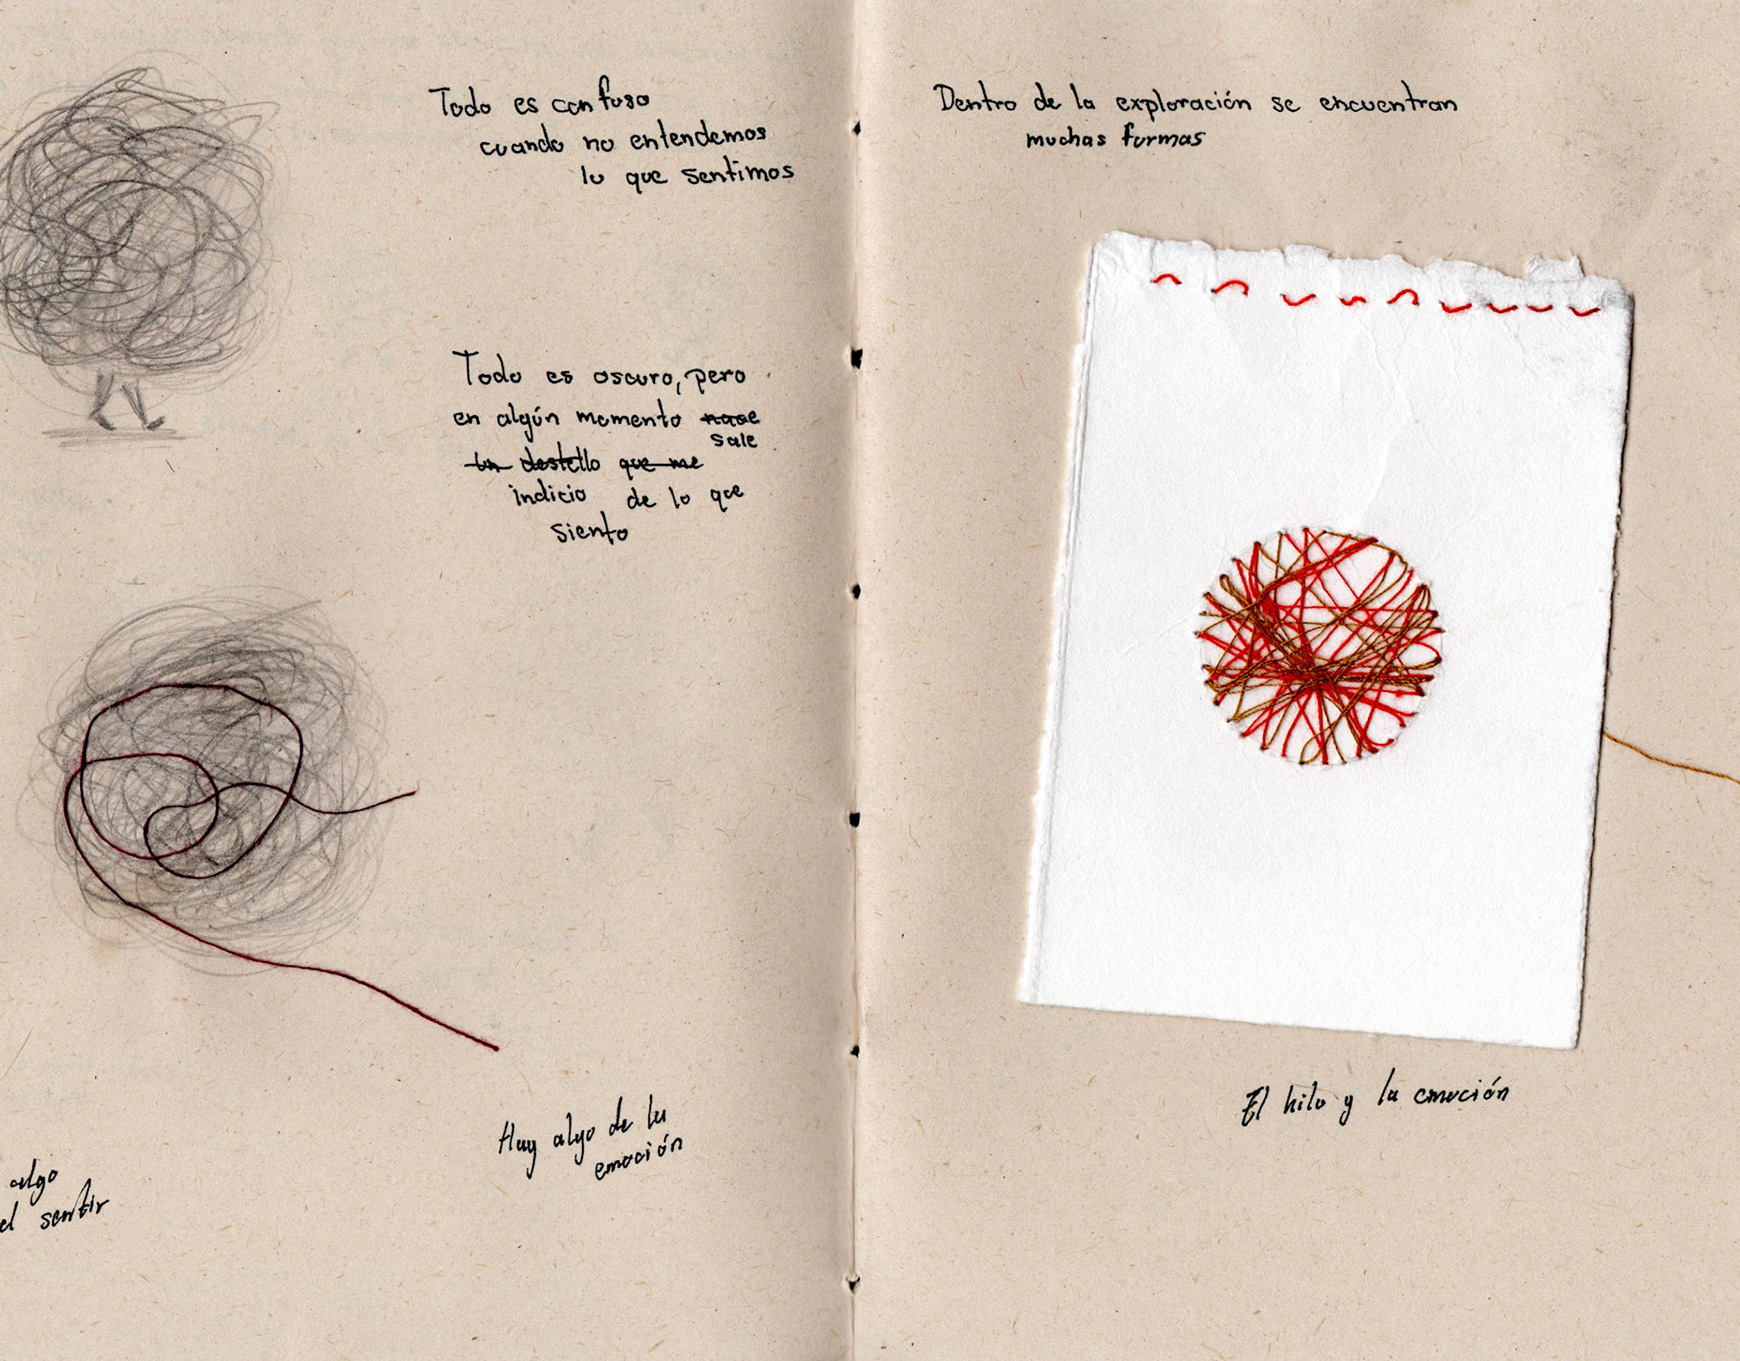 Todo es confuso
cuando no entendemos
lo que sentimos
Todo es oscuro, pero
en algún momento nace
sale
un destello que me
indicio de lo que
siento
Hay algo de la
emoción
algo
el sentir
Dentro de la exploración se encuentran
muchas formas
El hilo y la emoción